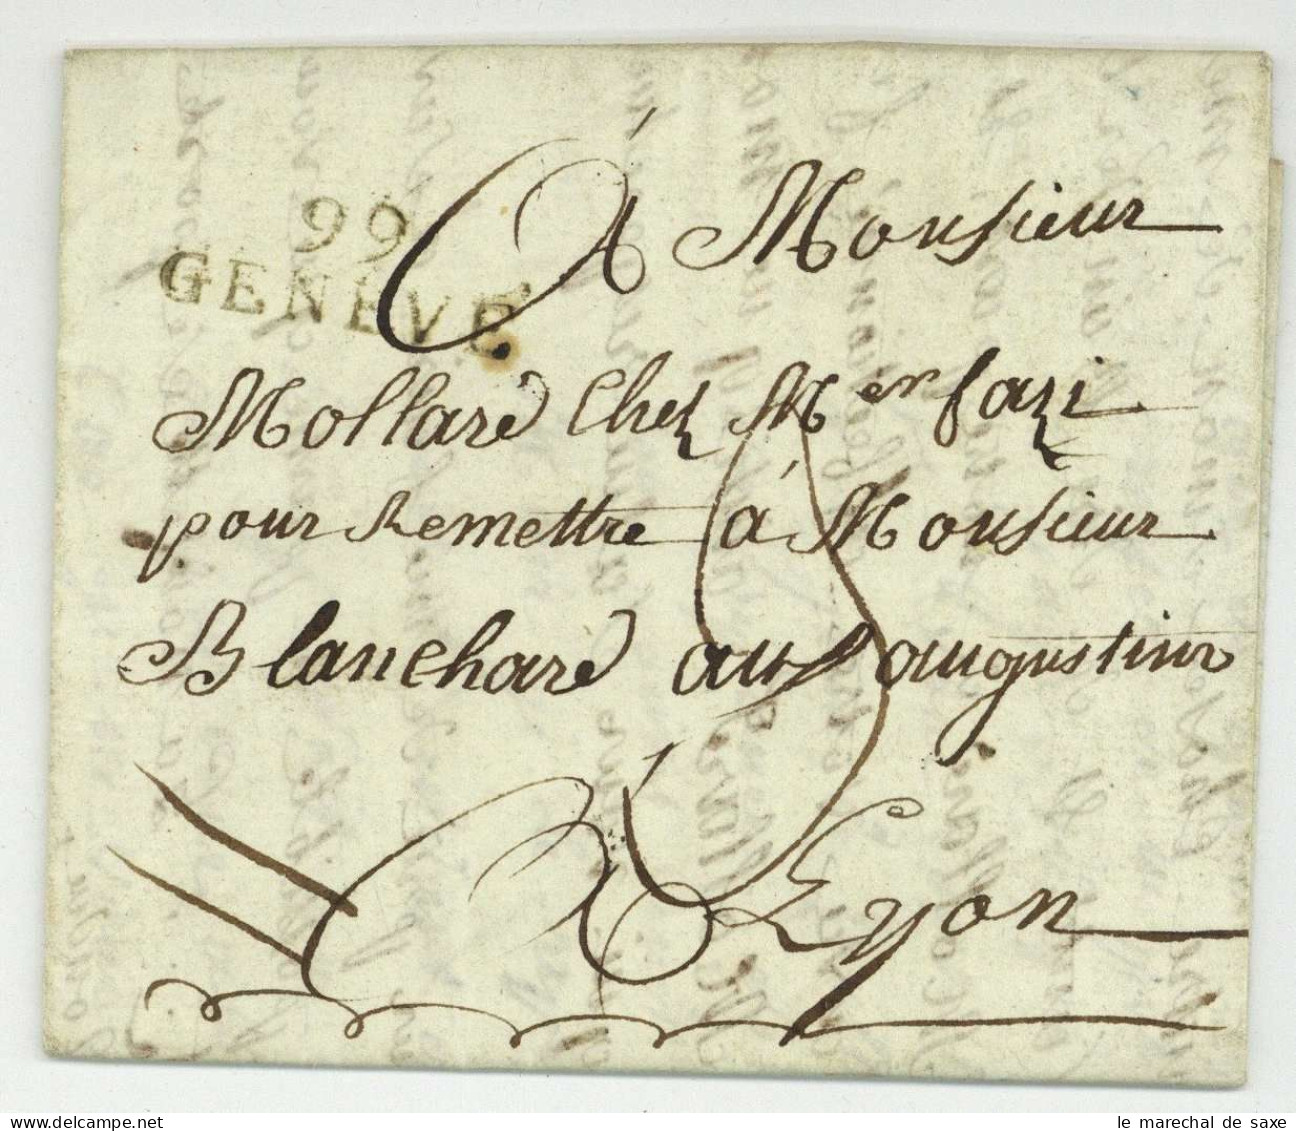 99
GENEVE
À Monsieur
Mollard Chez M
pour Remettre à Monsieur
Blanchard aux augustins
A Lyon
le marechal de saxe